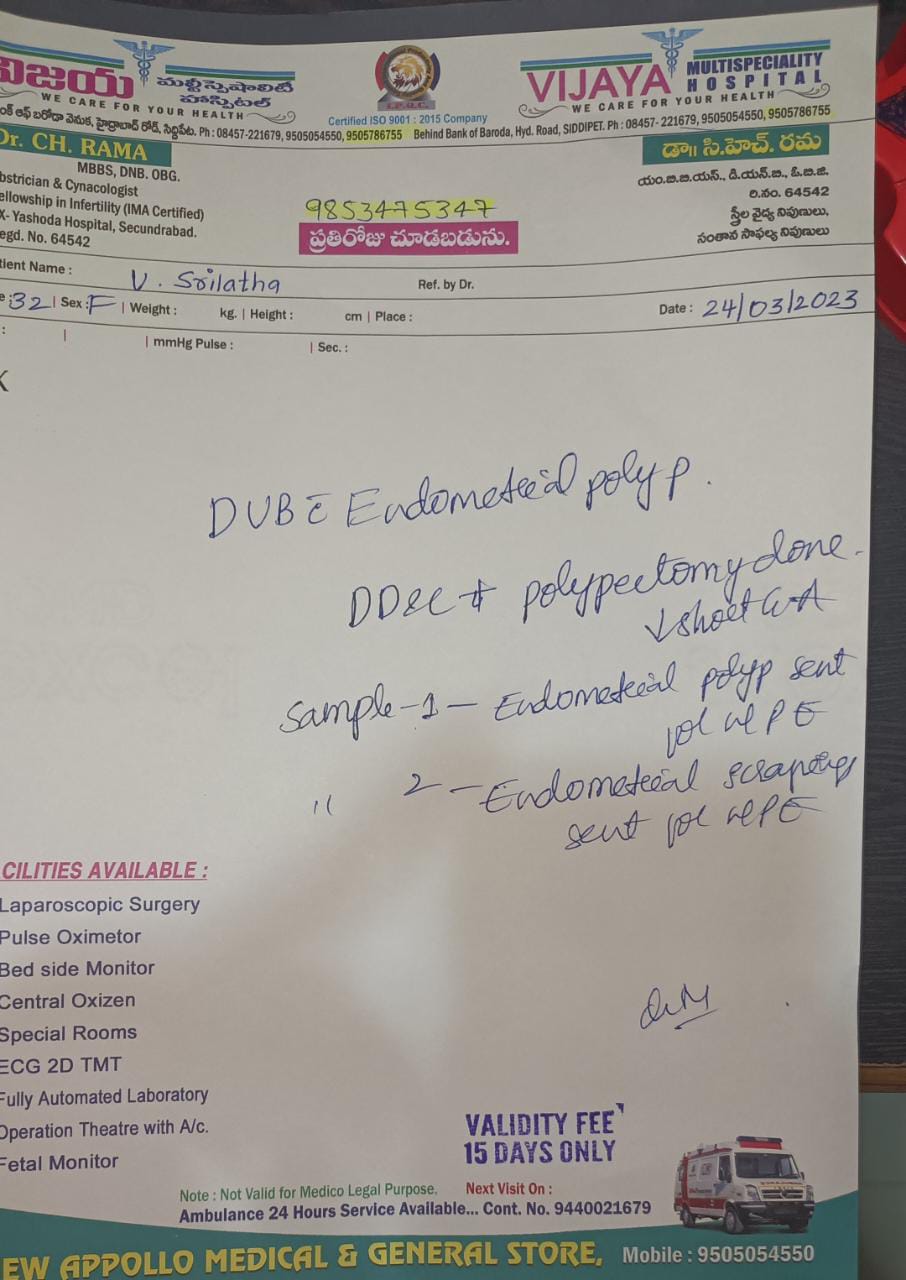 విజయ మల్టీస్పెషాలిటీ హాస్పిటల్
WE CARE FOR YOUR HEALTH
I.P.Q.C.
Certified ISO 9001 : 2015 Company
VIJAYA MULTISPECIALITY HOSPITAL
WE CARE FOR YOUR HEALTH
ంక్ ఆఫ్ బరోడా వెనుక, హైద్రాబాద్ రోడ్, సిద్దిపేట. Ph : 08457-221679, 9505054550, 9505786755 Behind Bank of Baroda, Hyd. Road, SIDDIPET. Ph : 08457- 221679, 9505054550, 9505786755
Dr. CH. RAMA
MBBS, DNB. OBG.
bstrician & Cynacologist
ellowship in Infertility (IMA Certified)
X- Yashoda Hospital, Secundrabad.
egd. No. 64542
9853475347
ప్రతిరోజు చూడబడును.
డా॥ సి.హెచ్. రమ
యం.బి.బి.యస్., డి.యన్.బి., ఓ.బి.జి.
రి.నం. 64542
స్త్రీల వైద్య నిపుణులు,
సంతాన సాఫల్య నిపుణులు
tient Name : V. Srilatha Ref. by Dr.
e : 32 | Sex : F | Weight : kg. | Height : cm | Place : Date : 24/03/2023
: | | mmHg Pulse : | Sec. :
DUB c̄ Endometrial polyp.
DD&C + polypectomy done.
↓ short GA
Sample-1 - Endometrial polyp sent
for HPE
" 2 - Endometrial scrapings
sent for HPE
CILITIES AVAILABLE :
Laparoscopic Surgery
Pulse Oximetor
Bed side Monitor
Central Oxizen
Special Rooms
ECG 2D TMT
Fully Automated Laboratory
Operation Theatre with A/c.
Fetal Monitor
VALIDITY FEE
15 DAYS ONLY
Note : Not Valid for Medico Legal Purpose. Next Visit On :
Ambulance 24 Hours Service Available... Cont. No. 9440021679
EW APPOLLO MEDICAL & GENERAL STORE, Mobile : 9505054550